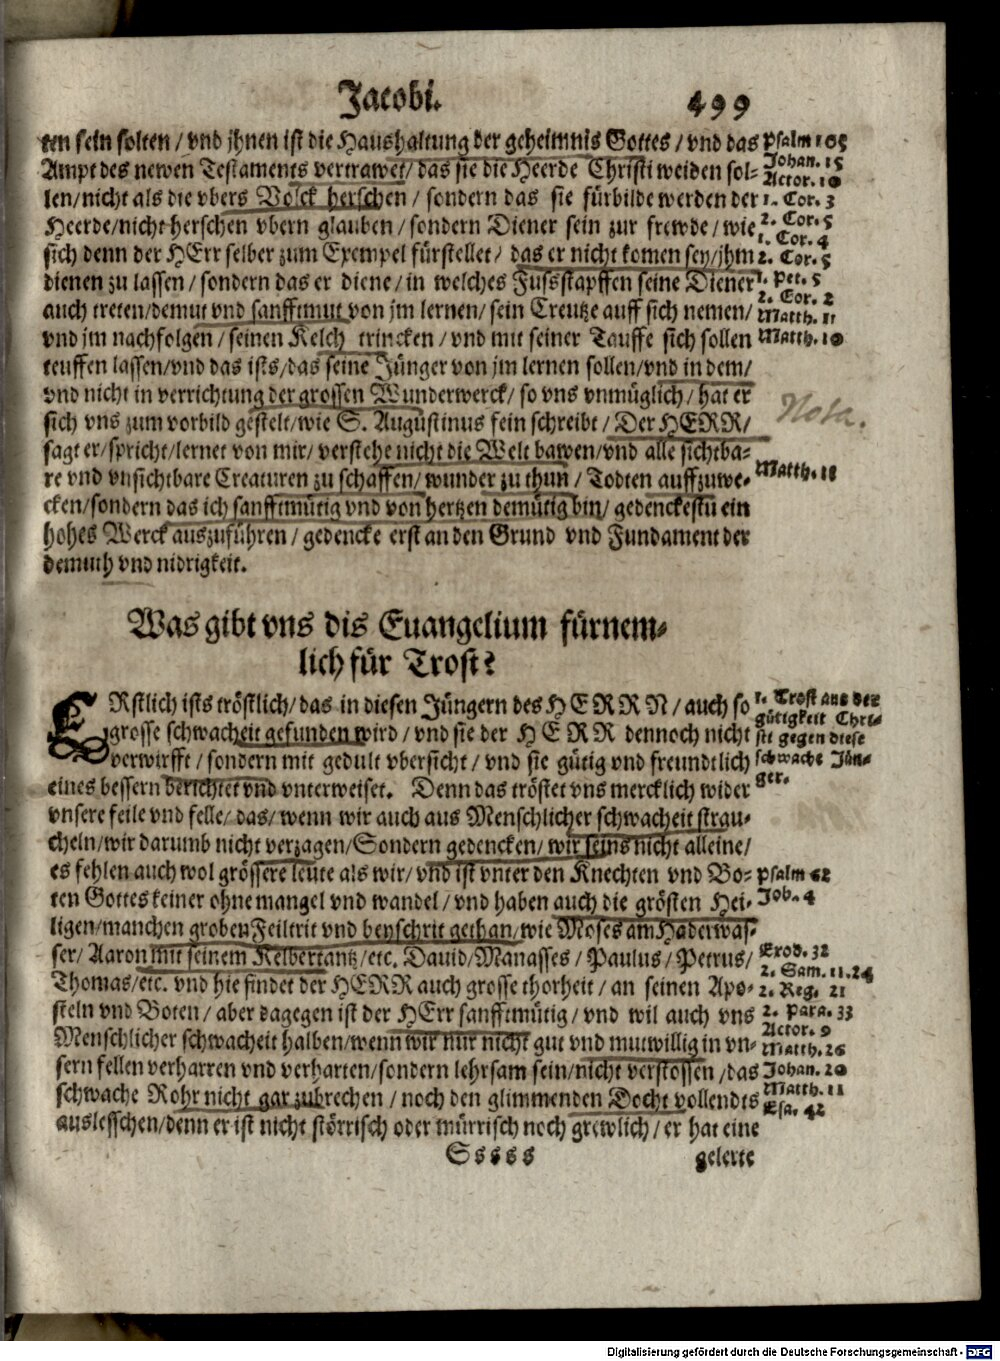 Jacobi. 499
ten sein solten / vnd jhnen ist die Haushaltung der geheimnis Gottes / vnd das
Ampt des newen Testaments vertrawet / das sie die Heerde Christi weiden sol-
len / nicht als die vbers Volck herschen / sondern das sie fürbilde werden der
Heerde / nicht herschen vbern glauben / sondern Diener sein zur frewde / wie
sich denn der HErr selber zum Exempel fürstellet / das er nicht komen sey / jhm
dienen zu lassen / sondern das er diene / in welches Fussstapffen seine Diener
auch treten / demut vnd sanfftmut von jm lernen / sein Creutze auff sich nemen /
vnd jm nachfolgen / seinen Kelch trincken / vnd mit seiner Tauffe sich sollen
teuffen lassen / vnd das ists / das seine Jünger von jm lernen sollen / vnd in dem /
vnd nicht in verrichtung der grossen Wunderwerck / so vns vnmüglich / hat er
sich vns zum vorbild gestelt / wie S. Augustinus fein schreibt / Der HERR /
sagt er / spricht / lernet von mir / verstehe nicht die Welt bawen / vnd alle sichtba-
re vnd vnsichtbare Creaturen zu schaffen / wunder zu thun / Todten auffzuwe-
cken / sondern das ich sanfftmütig vnd von hertzen demütig bin / gedenckestu ein
hohes Werck auszuführen / gedencke erst an den Grund vnd Fundament der
demuth vnd nidrigkeit.
Psalm 105
Johan. 15
Actor. 10
1. Cor. 3
2. Cor. 5
1. Cor. 4
2. Cor. 5
1. Pet. 5
2. Cor. 2
Matth. 11
Matth. 10
Nota.
Matth. 11
Was gibt vns dis Euangelium fürnem-
lich für Trost?
ERstlich ists tröstlich / das in diesen Jüngern des HERRN / auch so
grosse schwacheit gefunden wird / vnd sie der HERR dennoch nicht
verwirfft / sondern mit gedult vbersicht / vnd sie gütig vnd freundtlich
eines bessern berichtet vnd vnterweiset. Denn das tröstet vns mercklich wider
vnsere feile vnd felle / das / wenn wir auch aus Menschlicher schwacheit strau-
cheln / wir darumb nicht verzagen / Sondern gedencken / wir seins nicht alleine /
es fehlen auch wol grössere leute als wir / vnd ist vnter den Knechten vnd Bo-
ten Gottes keiner ohne mangel vnd wandel / vnd haben auch die grösten Hei-
ligen / manchen groben Feiltrit vnd beyschrit gethan / wie Moses am Haderwas-
ser / Aaron mit seinem Kelbertantz / etc. David / Manasses / Paulus / Petrus /
Thomas / etc. vnd hie findet der HERR auch grosse thorheit / an seinen Apo-
steln vnd Boten / aber dagegen ist der HErr sanfftmütig / vnd wil auch vns
Menschlicher schwacheit halben / wenn wir nur nicht gut vnd mutwillig in vn-
sern fellen verharren vnd verharten / sondern lehrsam sein / nicht verstossen / das
schwache Rohr nicht gar zubrechen / noch den glimmenden Docht vollendts
auslesschen / denn er ist nicht störrisch oder mürrisch noch grewlich / er hat eine
1. Trost aus der
gütigkeit Chri-
sti gegen diese
schwache Jün-
ger.
Psalm 62
Job. 4
Exod. 32
2. Sam. 11. 24
2. Reg. 21
2. Para. 33
Actor. 9
Matth. 26
Johan. 20
Matth. 11
Esa. 42
Sssss gelerte
Digitalisierung gefördert durch die Deutsche Forschungsgemeinschaft - DFG